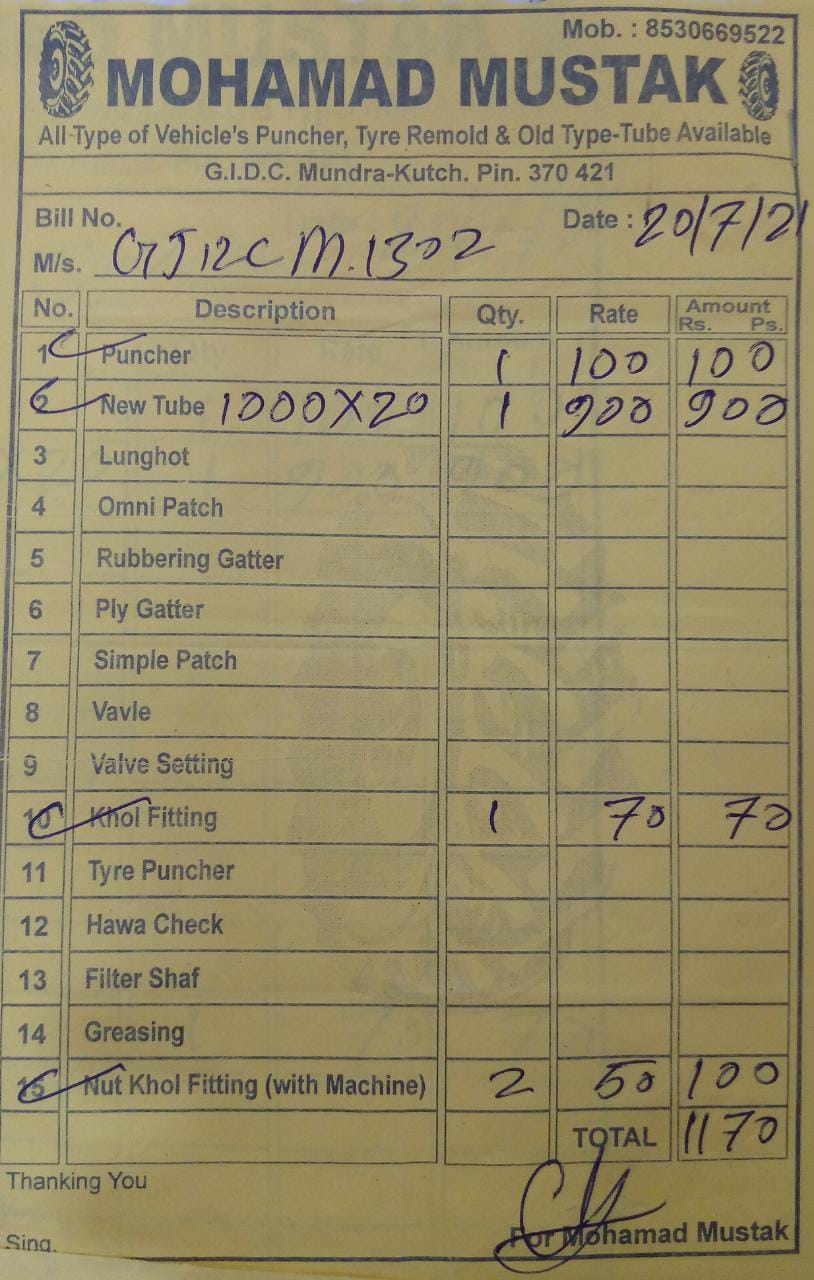 Mob. : 8530669522
MOHAMAD MUSTAK
All Type of Vehicle's Puncher, Tyre Remold & Old Type-Tube Available
G.I.D.C. Mundra-Kutch. Pin. 370 421
Bill No. Date : 20/7/21
M/s. GJ12CM.1302
No. Description Qty. Rate Amount Rs. Ps.
1 Puncher 1 100 100
2 New Tube 1000X20 1 900 900
3 Lunghot
4 Omni Patch
5 Rubbering Gatter
6 Ply Gatter
7 Simple Patch
8 Vavle
9 Valve Setting
10 Khol Fitting 1 70 70
11 Tyre Puncher
12 Hawa Check
13 Filter Shaf
14 Greasing
15 Nut Khol Fitting (with Machine) 2 50 100
TOTAL 1170
Thanking You
Sing. For Mohamad Mustak